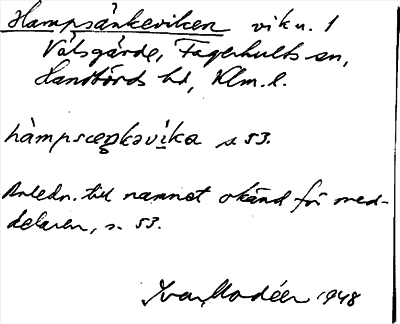 Hampsänkeviken vik u. 1
Våtsgärde, Fagerhults sn,
Handbörds hd, Klm. l.
hàmpsæŋkəvi̱ka s. 53.
Anledn. till namnet okänd för med-
delaren, s. 53.
Ivar Modéer 1948